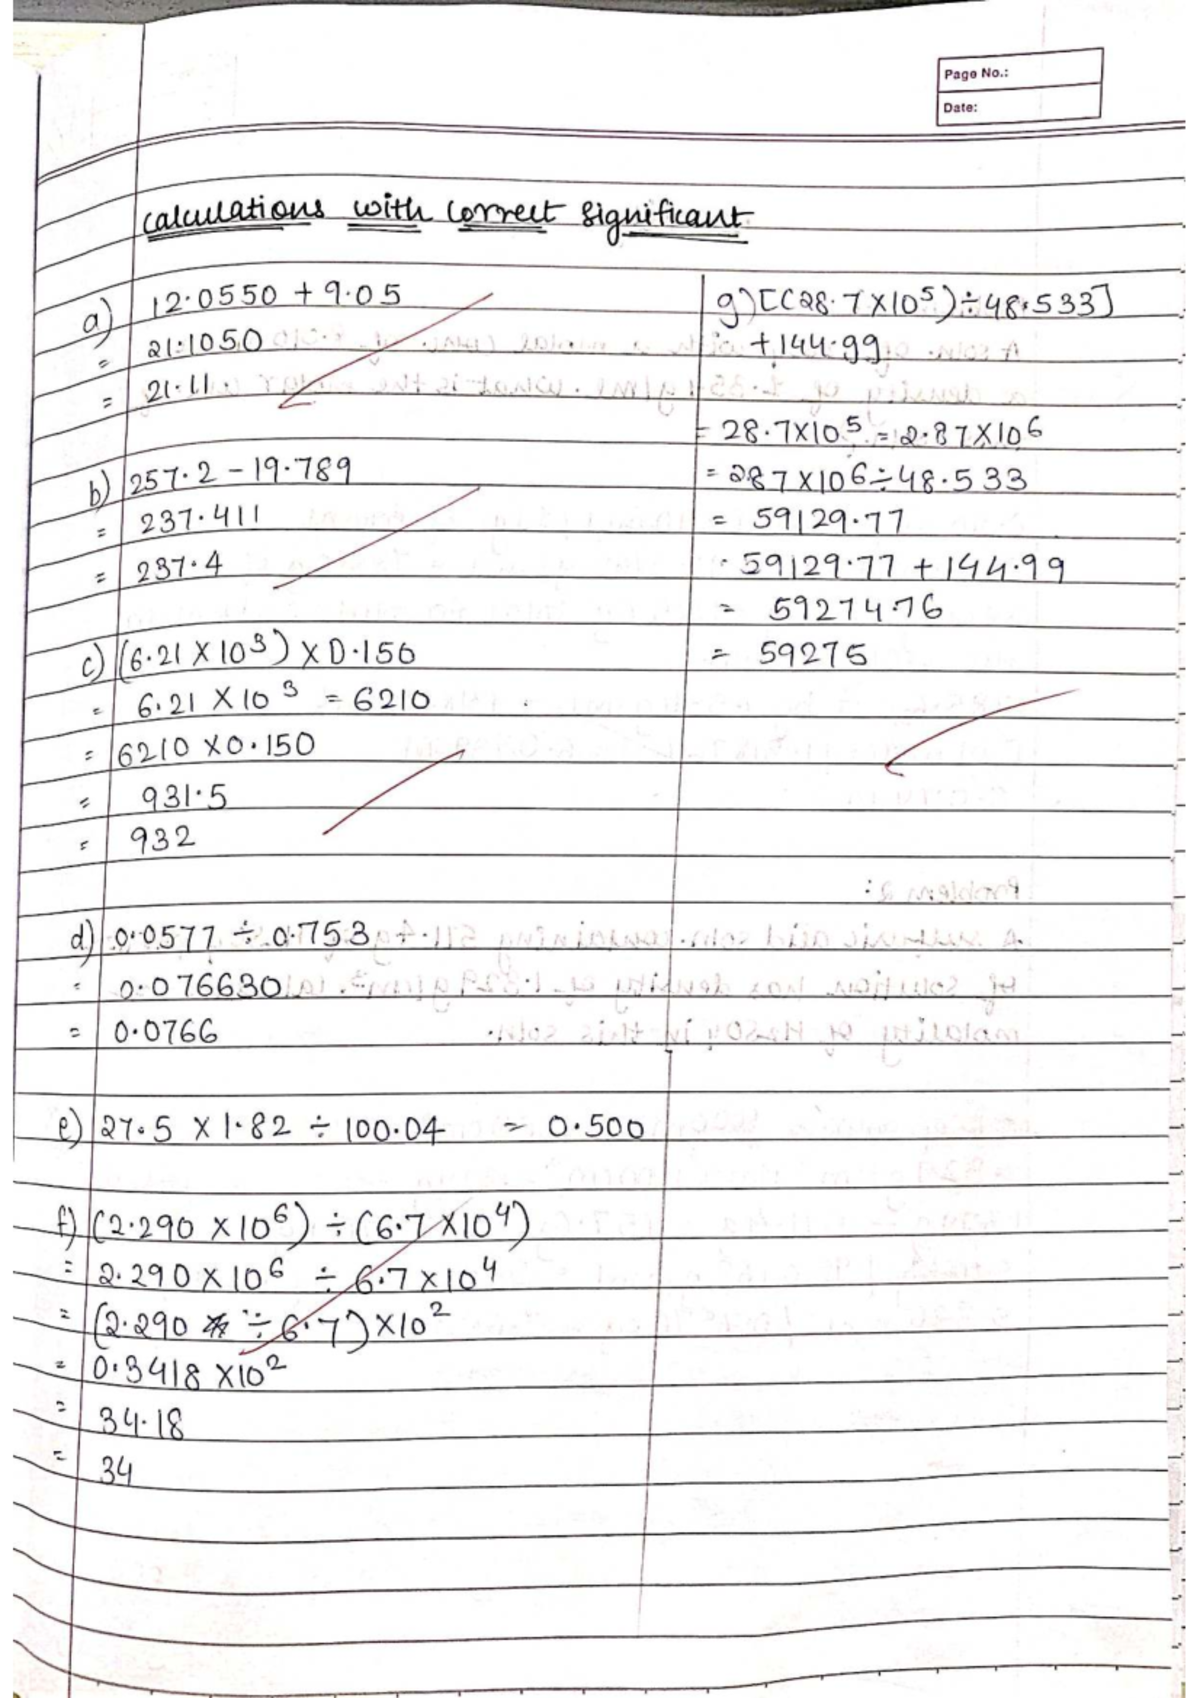 Page No.:
Date:
Calculations with correct significant
a) 12.0550 + 9.05
= 21.1050
= 21.11
b) 257.2 - 19.789
= 237.411
= 237.4
c) (6.21 X 10³) X 0.150
= 6.21 X 10³ = 6210
= 6210 X 0.150
= 931.5
= 932
d) 0.0577 ÷ 0.753
= 0.076630
= 0.0766
e) 27.5 X 1.82 ÷ 100.04 = 0.500
f) (2.290 X 10⁶) ÷ (6.7 X 10⁴)
= 2.290 X 10⁶ ÷ 6.7 X 10⁴
= (2.290 ÷ 6.7) X 10²
= 0.3418 X 10²
= 34.18
= 34
g) [(28.7 X 10⁵) ÷ 48.533]
+ 144.99
= 28.7 X 10⁵ = 2.87 X 10⁶
= 287 X 10⁶ ÷ 48.533
= 59129.77
. 59129.77 + 144.99
= 59274.76
= 59275